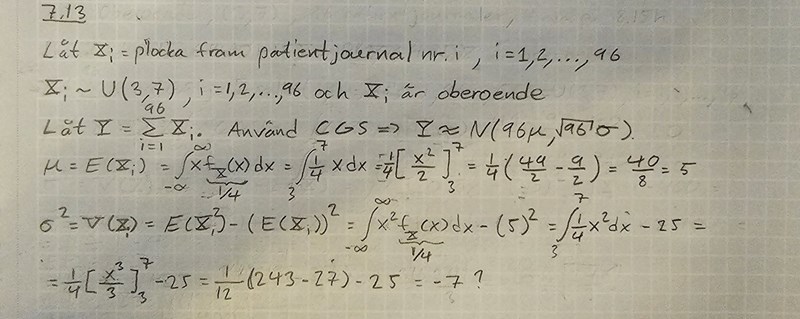 7.13
Låt X_i = plocka fram patientjournal nr. i , i=1,2,...,96
X_i ~ U(3,7) , i=1,2,...,96 och X_i är oberoende
Låt Y = ∑_{i=1}^{96} X_i. Använd CGS => Y ≈ N(96μ, √96 σ).
μ = E(X_i) = ∫_{-∞}^{∞} x f_X(x) dx = ∫_3^7 1/4 x dx = 1/4 [x²/2]_3^7 = 1/4 (49/2 - 9/2) = 40/8 = 5
1/4
σ² = V(X_i) = E(X_i²) - (E(X_i))² = ∫_{-∞}^{∞} x² f_X(x) dx - (5)² = ∫_3^7 1/4 x² dx - 25 =
1/4
= 1/4 [x³/3]_3^7 - 25 = 1/12 (243 - 27) - 25 = -7 ?